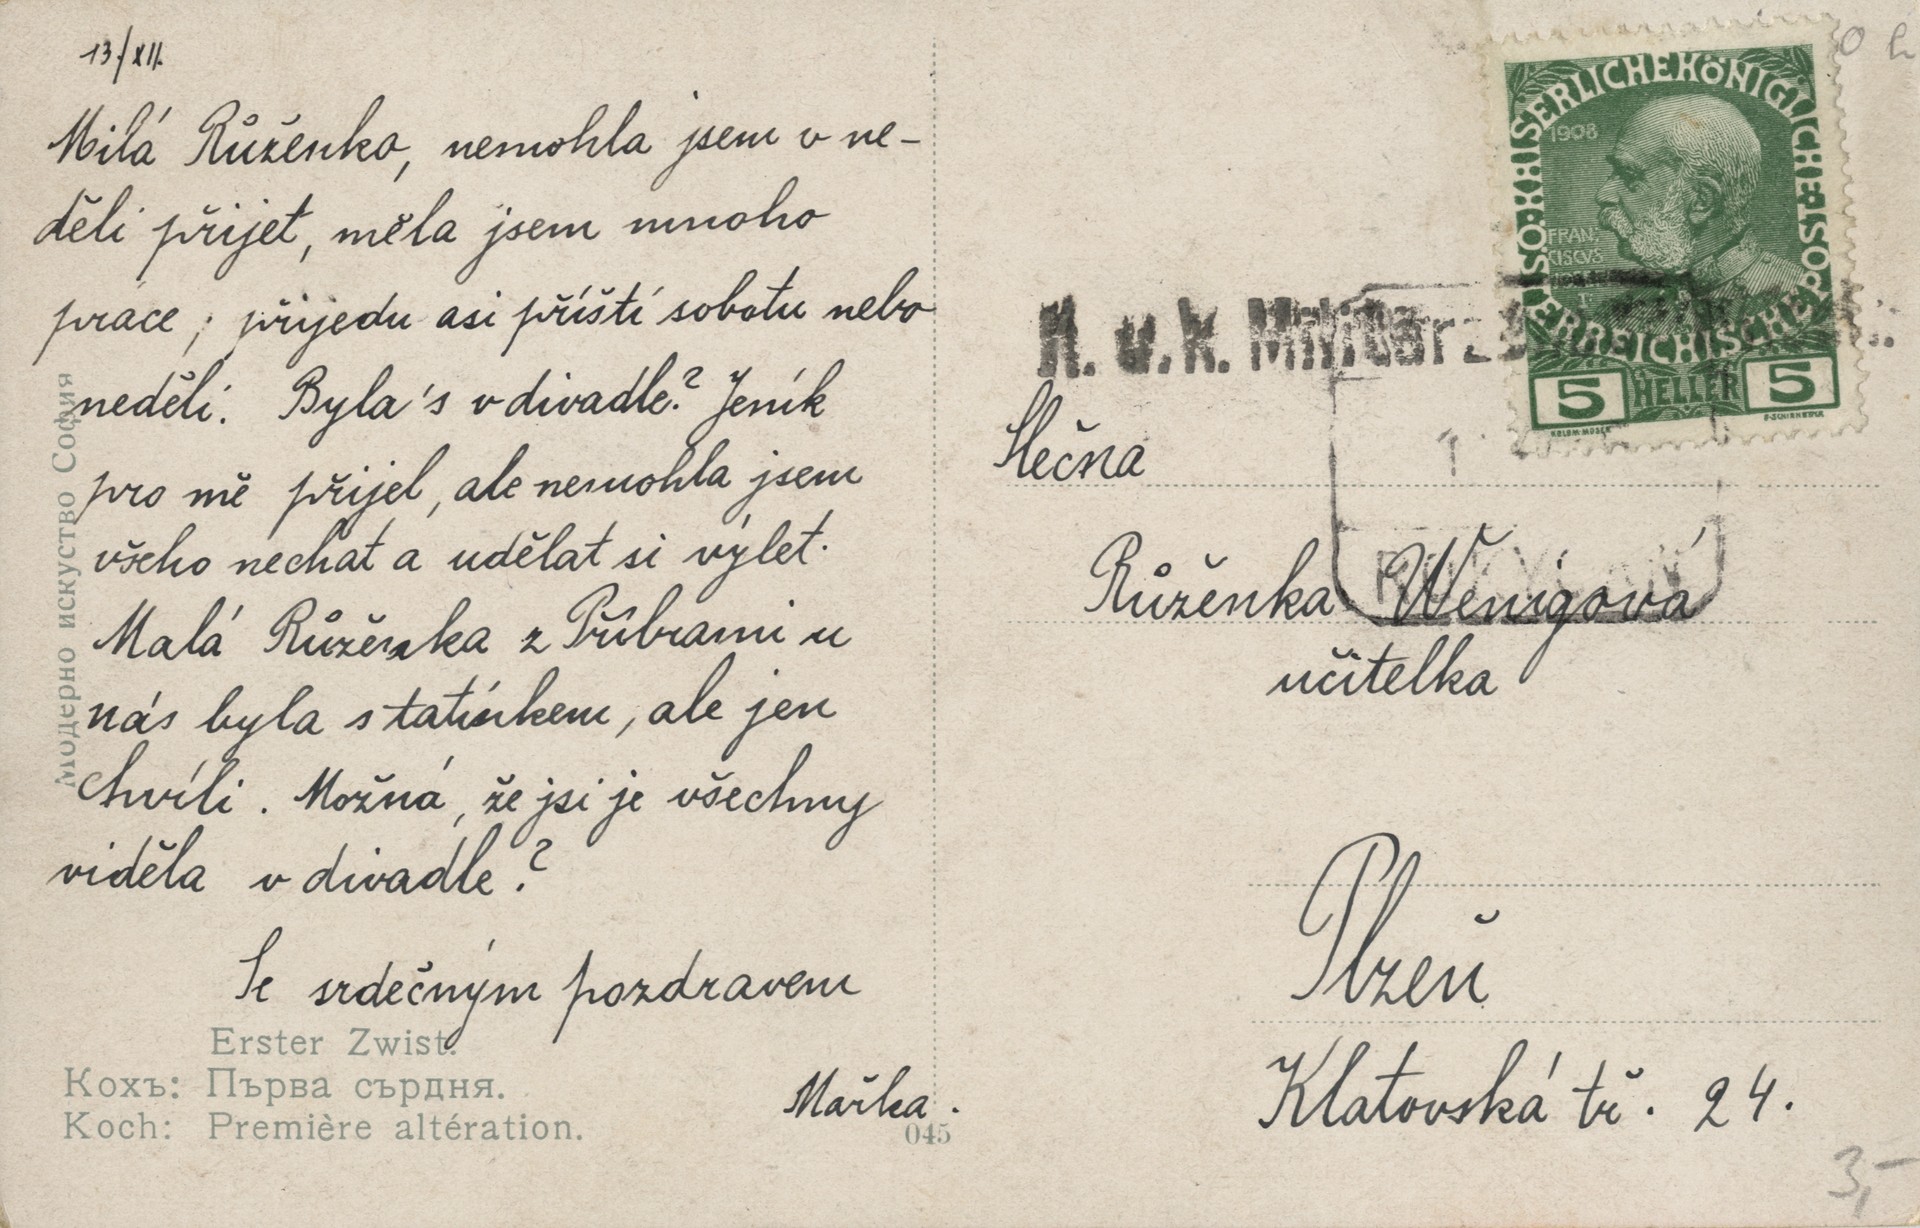 13/XII.
Milá Růženko, nemohla jsem v ne-
děli přijet, měla jsem mnoho
práce; přijedu asi příští sobotu nebo
neděli. Byla's v divadle? Jeník
pro mě přijel, ale nemohla jsem
všeho nechat a udělat si výlet.
Malá Růženka z Příbrami u
nás byla s tatínkem, ale jen
chvíli. Možná, že jsi je všechny
viděla v divadle?
Se srdečným pozdravem
Mařka.
Модерно искуство София
Erster Zwist.
Кохъ: Първа сърдня.
Koch: Première altération.
045
KAISERLICHE KÖNIGLICHE ÖSTERREICHISCHE POST
1908
FRAN
CISCVS
5 HELLER 5
KOLOM. MOSER
F. SCHIRNBÖCK
K. u. k. Militär
Slečna
Růženka Wenigová
učitelka
Plzeň
Klatovská tř. 24.
3,-